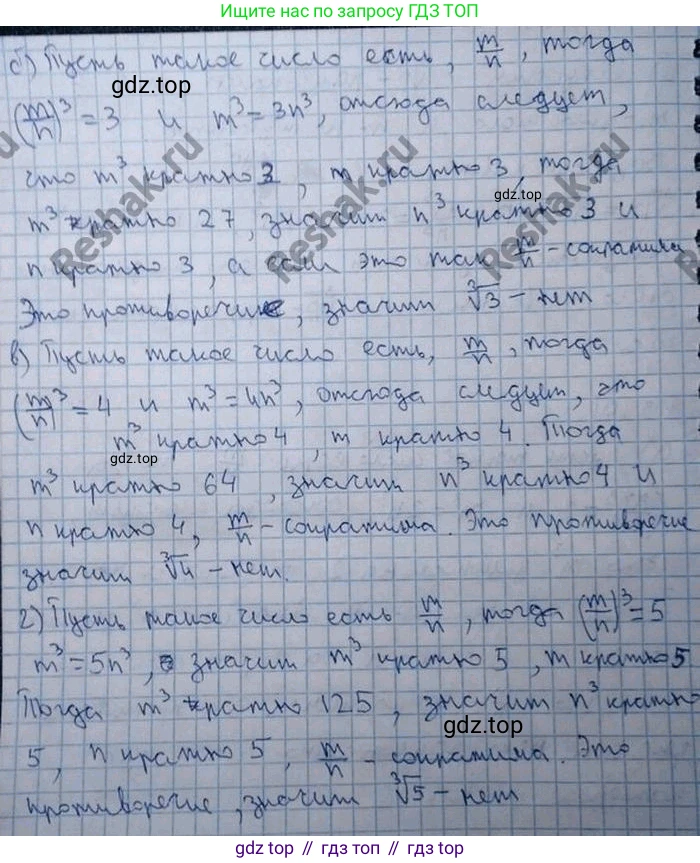 Ищите нас по запросу ГДЗ ТОП
б) Пусть такое число есть, m/n, тогда
gdz.top
(m/n)³ = 3 и m³ = 3n³, отсюда следует,
что m³ кратно 3, m кратно 3, тогда
gdz.top
m³ кратно 27, значит n³ кратно 3 и
n кратно 3, а если это так m/n - сократима
Это противоречие, значит ∛3 - нет
в) Пусть такое число есть, m/n, тогда
(m/n)³ = 4 и m³ = 4n³, отсюда следует, что
m³ кратно 4, m кратно 4. Тогда
gdz.top
m³ кратно 64, значит n³ кратно 4 и
n кратно 4, m/n - сократима. Это противоречие
значит ∛4 - нет.
г) Пусть такое число есть m/n, тогда (m/n)³ = 5
m³ = 5n³, значит m³ кратно 5, m кратно 5
Тогда m³ кратно 125, значит n³ кратно
gdz.top
5, n кратно 5, m/n - сократима. Это
противоречие, значит ∛5 - нет
Reshak.ru
Reshak.ru
Reshak.ru
gdz.top // gdz.top // gdz.top